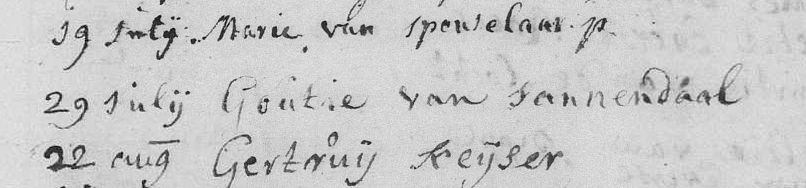 19 Julij Marie van sponselaar. p.
29 Julij Goutie van sannendaal
22 aug Gertruij Keijser